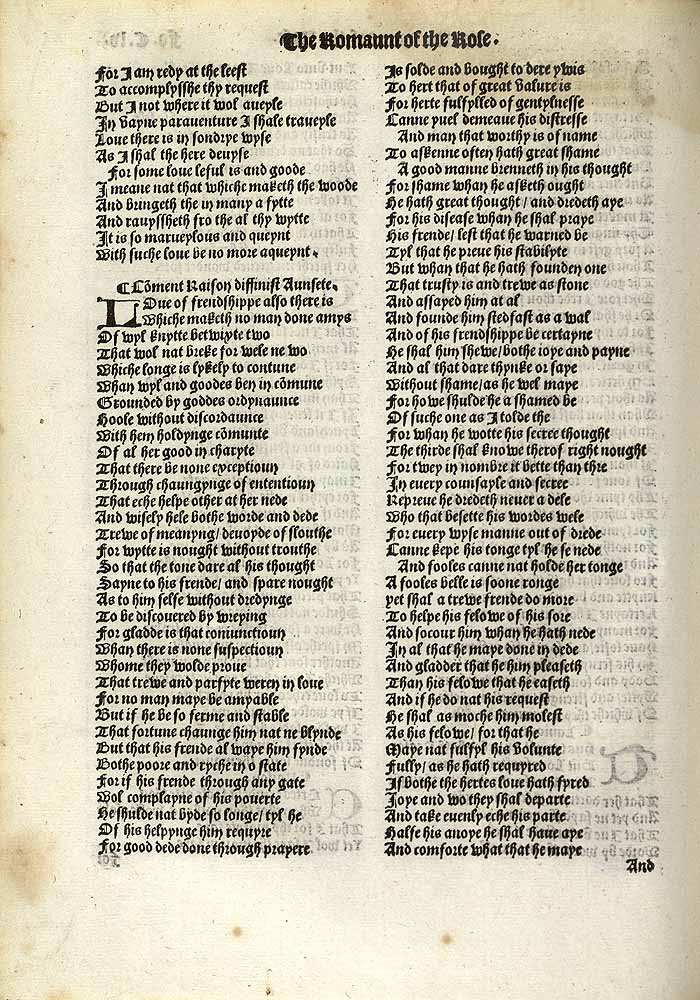 The Romaunt of the Rose.
For I am redy at the leest
To accomplysshe thy request
But I not where it wol aueyle
In vayne parauenture I shale traueyle
Loue there is in sondrye wyse
As I shal the here deuyse
For some loue leful is and goode
I meane nat that whiche maketh the woode
And bringeth the in many a fytte
And rauyssheth fro the al thy wytte
It is so marueylous and queynt
With suche loue be no more aqueynt.
¶ Cōment Raison diffinist Aunsete.
LOue of frendshippe also there is
Whiche maketh no man done amys
Of wyl knytte betwixte two
That wol nat breke for wele ne wo
Whiche longe is lykely to contune
Whan wyl and goodes ben in cōmune
Grounded by goddes ordynaunce
Hoole without discordaunce
With hem holdynge cōmunte
Of al her good in charyte
That there be none exceptioun
Through chaungynge of ententioun
That eche helpe other at her nede
And wisely hele bothe worde and dede
Trewe of meanyng/ deuoyde of slouthe
For wytte is nought without trouthe
So that the tone dare al his thought
Sayne to his frende/ and spare nought
As to him selfe without dredynge
To be discouered by wreying
For gladde is that coniunctioun
Whan there is none suspectioun
Whome they wolde proue
That trewe and parfyte weren in loue
For no man maye be amyable
But if he be so ferme and stable
That fortune chaunge him nat ne blynde
But that his frende al waye him fynde
Bothe poore and ryche in o state
For if his frende through any gate
Wol complayne of his pouerte
He shulde nat byde so longe/ tyl he
Of his helpynge him requyre
For good dede done through prayere
Is solde and bought to dere ywis
To hert that of great valure is
For herte fulfylled of gentylnesse
Canne yuel demeaue his distresse
And man that worthy is of name
To askenne often hath great shame
A good manne brenneth in his thought
For shame whan he asketh ought
He hath great thought/ and dredeth aye
For his disease whan he shal praye
His frende/ lest that he warned be
Tyl that he preue his stabilyte
But whan that he hath founden one
That trusty is and trewe as stone
And assayed him at al
And founde him stedfast as a wal
And of his frendshippe be certayne
He shal him shewe/bothe ioye and payne
And al that dare thynke or saye
Without shame/as he wel maye
For howe shulde he a shamed be
Of suche one as I tolde the
For whan he wotte his secree thought
The thirde shal knowe therof right nought
For twey in nombre it bette than thre
In euery counsayle and secree
Repreue he dredeth neuer a dele
Who that besette his wordes wele
For euery wyse manne out of drede
Canne kepe his tonge tyl he se nede
And fooles canne nat holde her tonge
A fooles belle is soone ronge
yet shal a trewe frende do more
To helpe his felowe of his sore
And socour him whan he hath nede
In al that he maye done in dede
And gladder that he him pleaseth
Than his felowe that he easeth
And if he do nat his request
He shal as moche him molest
As his felowe/ for that he
Maye nat fulfyl his volunte
Fully/ as he hath requyred
If bothe the hertes loue hath fyred
Joye and wo they shal departe
And take euenly eche his parte
Halfe his anoye he shal haue aye
And comforte what that he maye
And